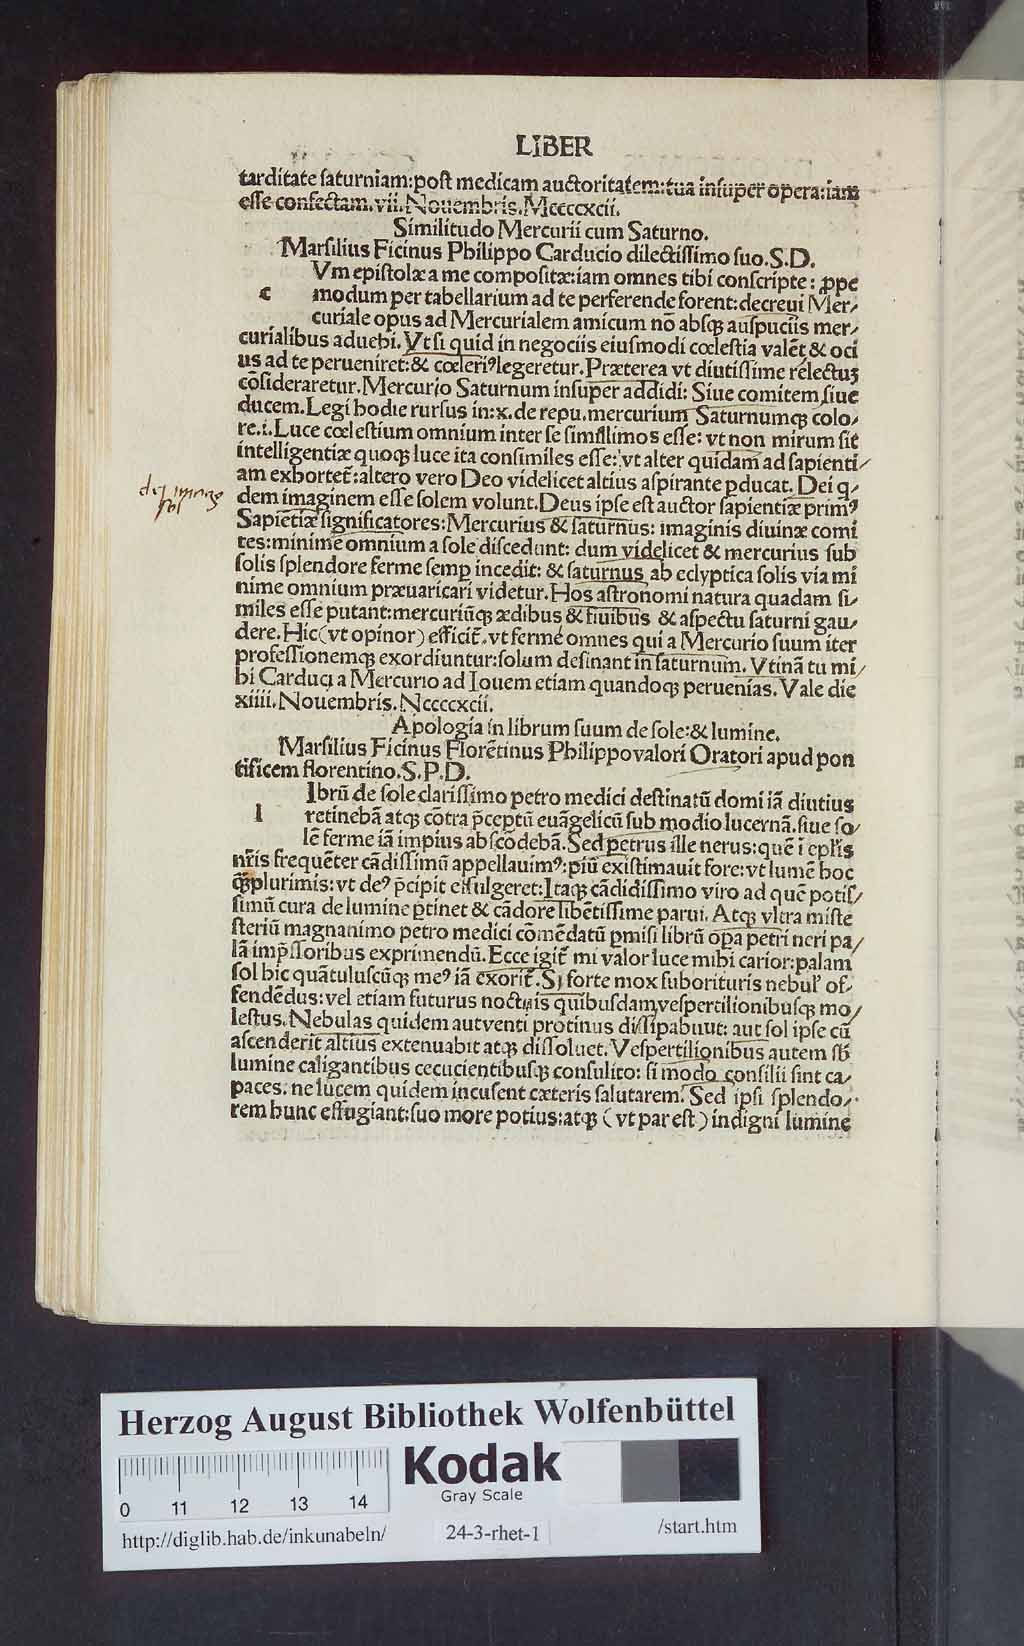 LIBER
tarditate ſaturniam:poſt medicam auctoritatem:tua inſuper opera:iam
eſſe confectam.vii.Nouembris.Mccccxcii.
Similitudo Mercurii cum Saturno.
Marſilius Ficinus Philippo Carducio dilectiſſimo ſuo.S.D.
Vm epiſtolæ a me compoſitæ:iam omnes tibi conſcripte: ꝓpe
c modum per tabellarium ad te perferende forent:decreui Mer/
curiale opus ad Mercurialem amicum nō abſqꝫ auſpuciis mer/
curialibus aduehi.Vt ſi quid in negociis eiuſmodi cœleſtia valēt & oci
us ad te perueniret:& cœleriꝰ legeretur.Præterea vt diutiſſime relectuꝫ
cōſideraretur.Mercurio Saturnum inſuper addidi: Siue comitem ſiue
ducem.Legi hodie rurſus in:x.de repu.mercurium Saturnumqꝫ colo/
re.i.Luce cœleſtium omnium inter ſe ſimillimos eſſe: vt non mirum ſit
intelligentiæ quoqꝫ luce ita conſimiles eſſe: vt alter quidam ad ſapienti/
am exhortet̄:altero vero Deo videlicet altius aſpirante ꝑducat. Dei q/
dem imaginem eſſe ſolem volunt.Deus ipſe eſt auctor ſapientiæ primꝰ
Sapiētiæ ſignificatores:Mercurius & ſaturnus: imaginis diuinæ comi
tes:minime omnium a ſole diſcedunt: dum videlicet & mercurius ſub
ſolis ſplendore ferme ſemꝑ incedit: & ſaturnus ab eclyptica ſolis via mi
nime omnium præuaricari videtur.Hos aſtronomi natura quadam ſi/
miles eſſe putant:mercuriūqꝫ ædibus & finibus & aſpectu ſaturni gau/
dere.Hic(vt opinor) efficit̄.vt ferme omnes qui a Mercurio ſuum iter
profeſſionemqꝫ exordiuntur:ſolum deſinant in ſaturnum.Vtinā tu mi/
hi Carduci a Mercurio ad Iouem etiam quandoqꝫ peruenias.Vale die
xiiii.Nouembris.Nccccxcii.
Apologia in librum ſuum de ſole:& lumine.
Marſilius Ficinus Florētinus Philippo valori Oratori apud pon
tificem florentino.S.P.D.
Ibrū de ſole clariſſimo petro medici deſtinatū domi iā diutius
l retinebā atqꝫ cōtra p̄ceptū euāgelicū ſub modio lucernā.ſiue ſo/
lē ferme iā impius abſcōdebā.Sed petrus ille nerus:quē ī epl̄is
nr̄is frequēter cādiſſimū appellauimꝰ:piū exiſtimauit fore:vt lumē hoc
q̄ꝫplurimis:vt deꝰ p̄cipit eiſulgeret:Itaqꝫ cādidiſſimo viro ad quē potiſ/
ſimū cura de lumine ꝑtinet & cādore libētiſſime parui. Atqꝫ vltra miſte
ſteriū magnanimo petro medici cōmēdatū ꝑmiſi librū oꝑa petri neri pa/
lā imp̄ſſoribus exprimendū.Ecce igit̄ mi valor luce mihi carior:palam
ſol hic quātuluſcūqꝫ meꝰ iā exorit̄.Si forte mox ſuborituris nebul' of-
fendēdus:vel etiam futurus noctuis quibuſdam veſpertilionibuſqꝫ mo/
leſtus.Nebulas quidem aut venti protinus diſſipabunt: aut ſol ipſe cū
aſcenderit altius extenuabit atqꝫ diſſoluet.Veſpertilionibus autem ſƀ
lumine caligantibus cecucientibuſqꝫ conſulito: ſi modo conſilii ſint ca/
paces.ne lucem quidem incuſent cæteris ſalutarem. Sed ipſi ſplendo/
rem hunc effugiant:ſuo more potius:atqꝫ (vt par eſt) indigni lumine
Herzog August Bibliothek Wolfenbüttel
0 11 12 13 14
Kodak
Gray Scale
http://diglib.hab.de/inkunabeln/ 24-3-rhet-1 /start.htm